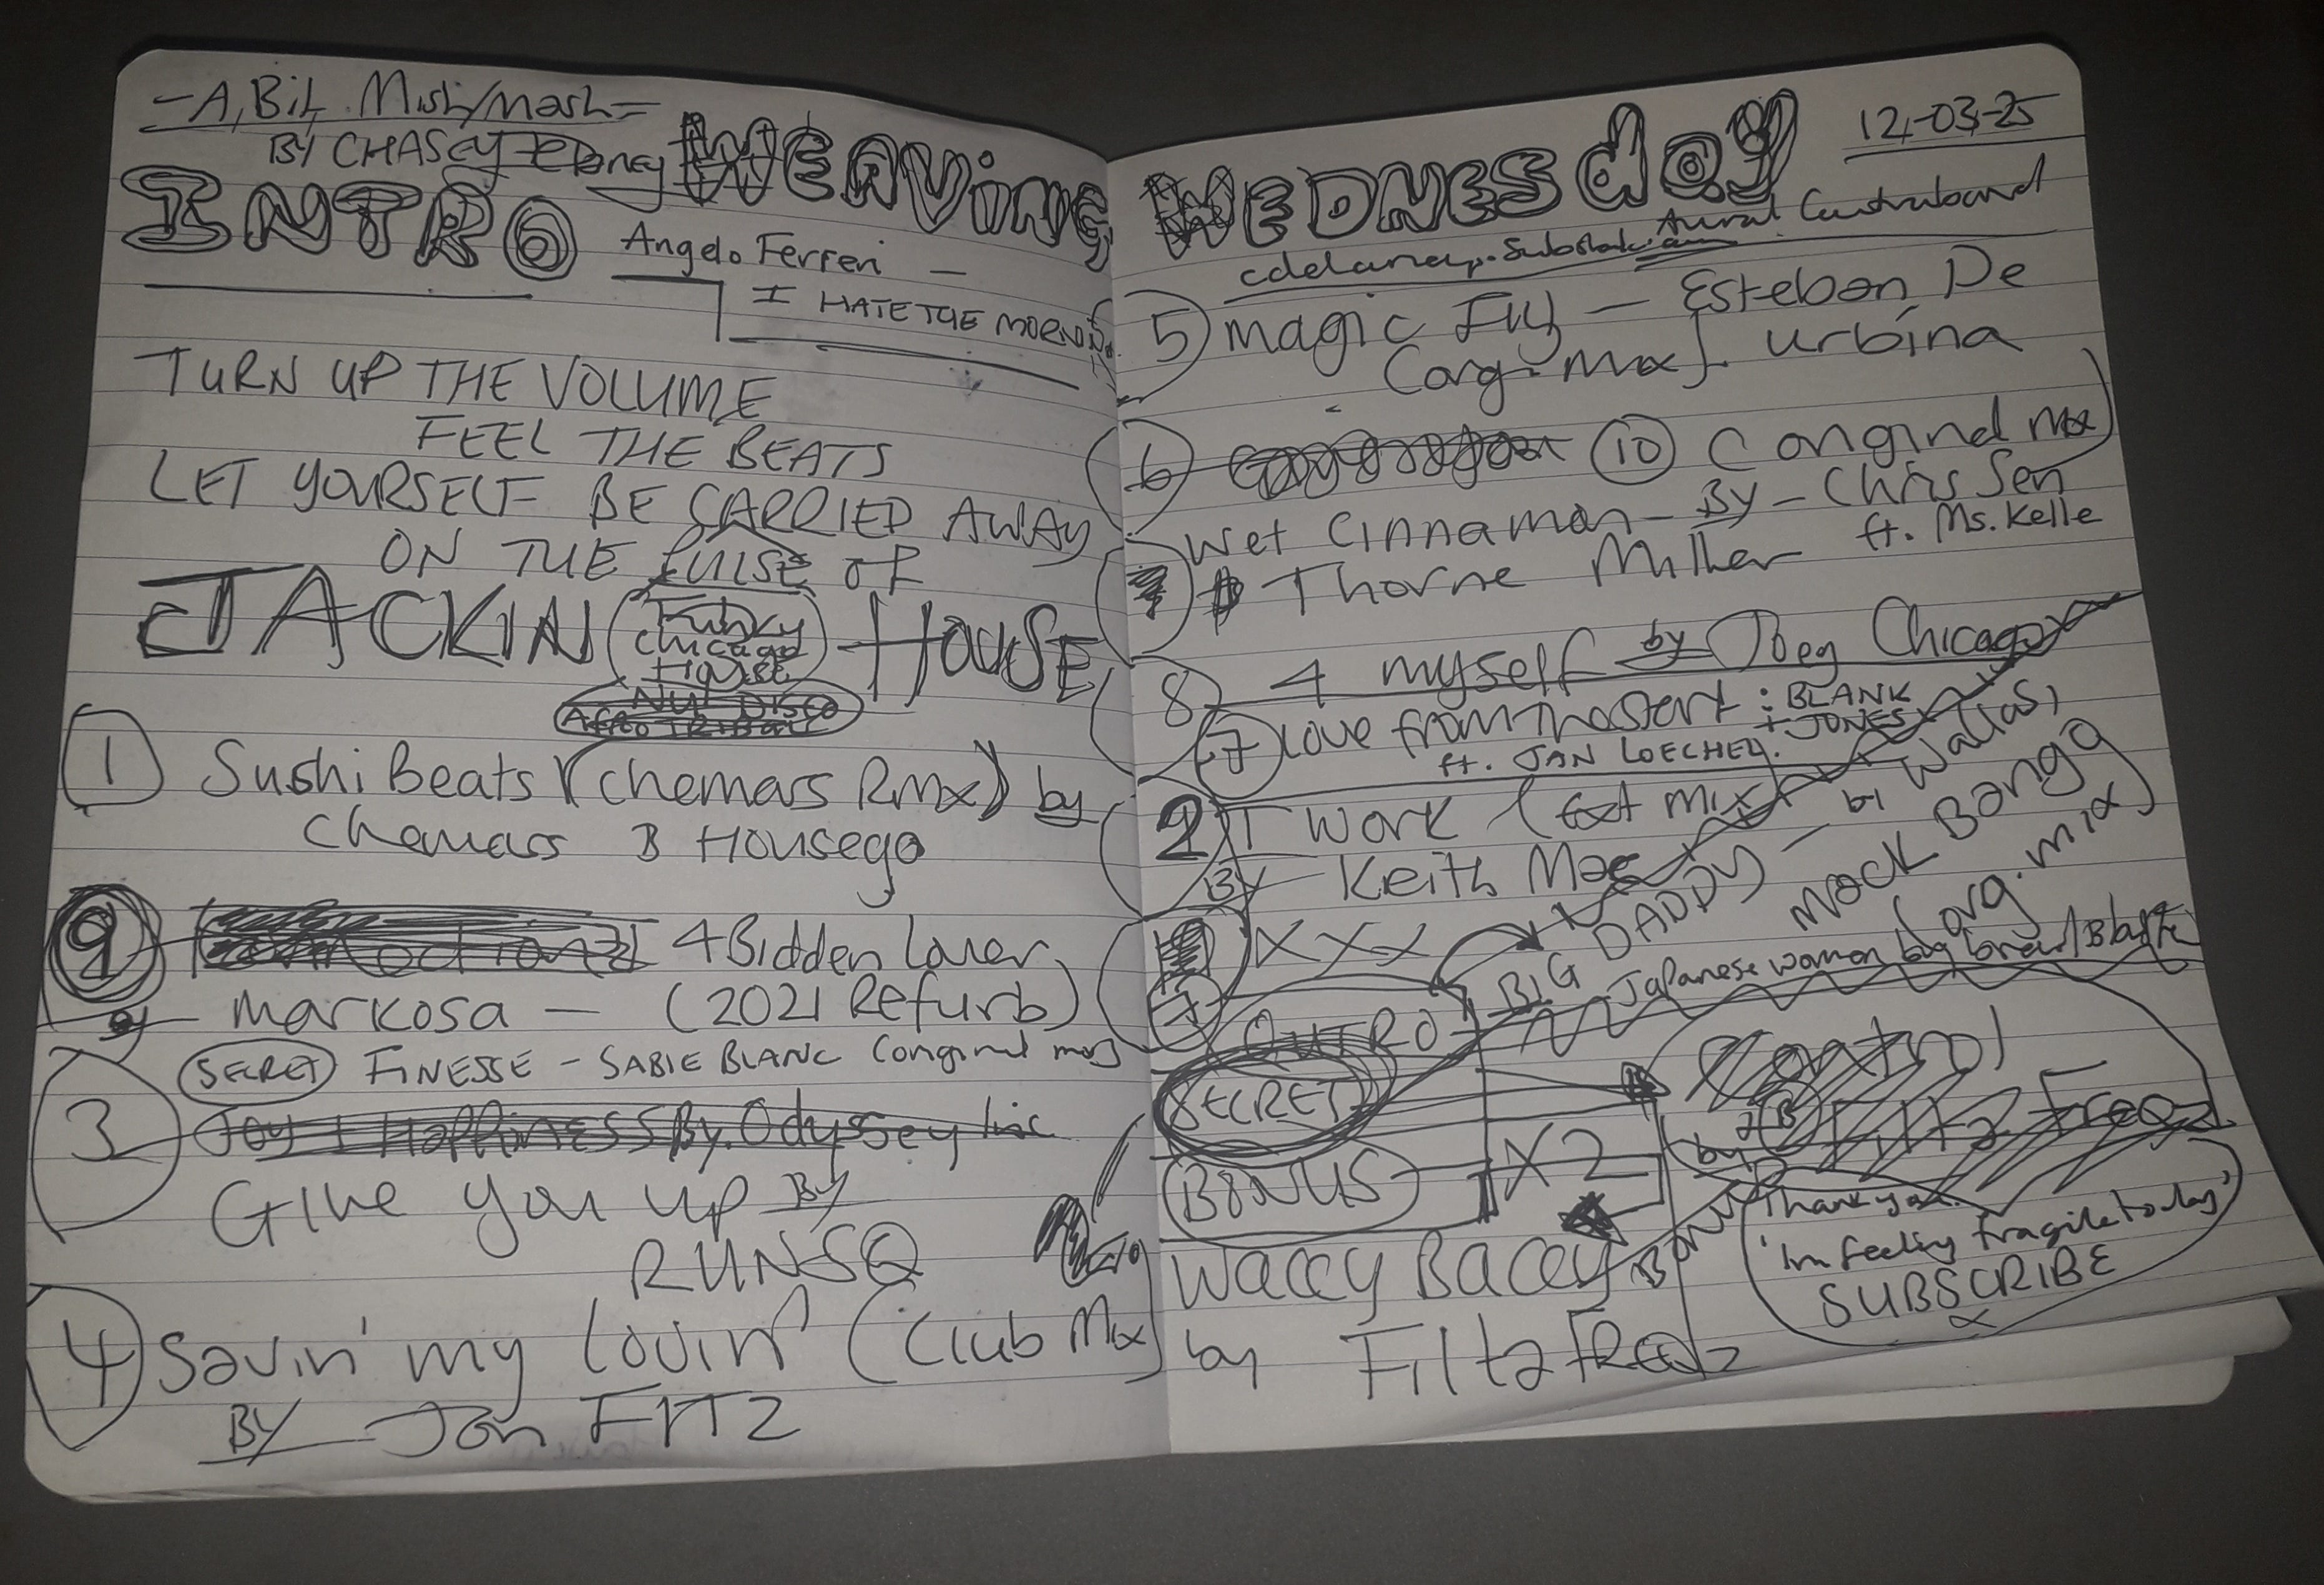 - A Bit Mish/Mash -
BY CHASEY
WEAVING
INTRO
Angelo Ferreri -
I HATE THE MORNING
TURN UP THE VOLUME
FEEL THE BEATS
LET YOURSELF BE CARRIED AWAY
ON THE PULSE OF
JACKIN HOUSE
Funky
Chicago
HOUSE
NU DISCO
AFRO TRIBAL
1 Sushi Beats (Chemars Rmx) by
Chemars B Housego
9 4 Bidden Lover
Markosa - (2021 Refurb)
SECRET FINESSE - SABIE BLANC (original mix)
3 Joy + Happiness By. Odyssey Inc
Give you up BY
RUNSQ
4 Savin' my lovin' (Club Mix)
BY Jon FITZ
WEDNESday
12-03-25
Aural Contraband
5 Magic Fly - Esteban De
(orig. mix) Urbina
6 10 (original mix)
Wet Cinnamon - BY - Chris Sen
ft. Ms. Kelle
Thorne Miller
8 4 myself by Joey Chicago
7 Love from the start : BLANK
+ JONES
ft. JAN LOECHEL
2 T WORK (Ext Mix)
BY Keith Mac
XXX
BIG DADDY - by Wattas,
Mack Banga
(org. mix)
OUTRO
SECRET
Control
by Filta Freqz
BONUS X2
BONUS
Thank you.
'Im feeling fragile today'
SUBSCRIBE
x
Waccy Baccy
by Filta FReqz